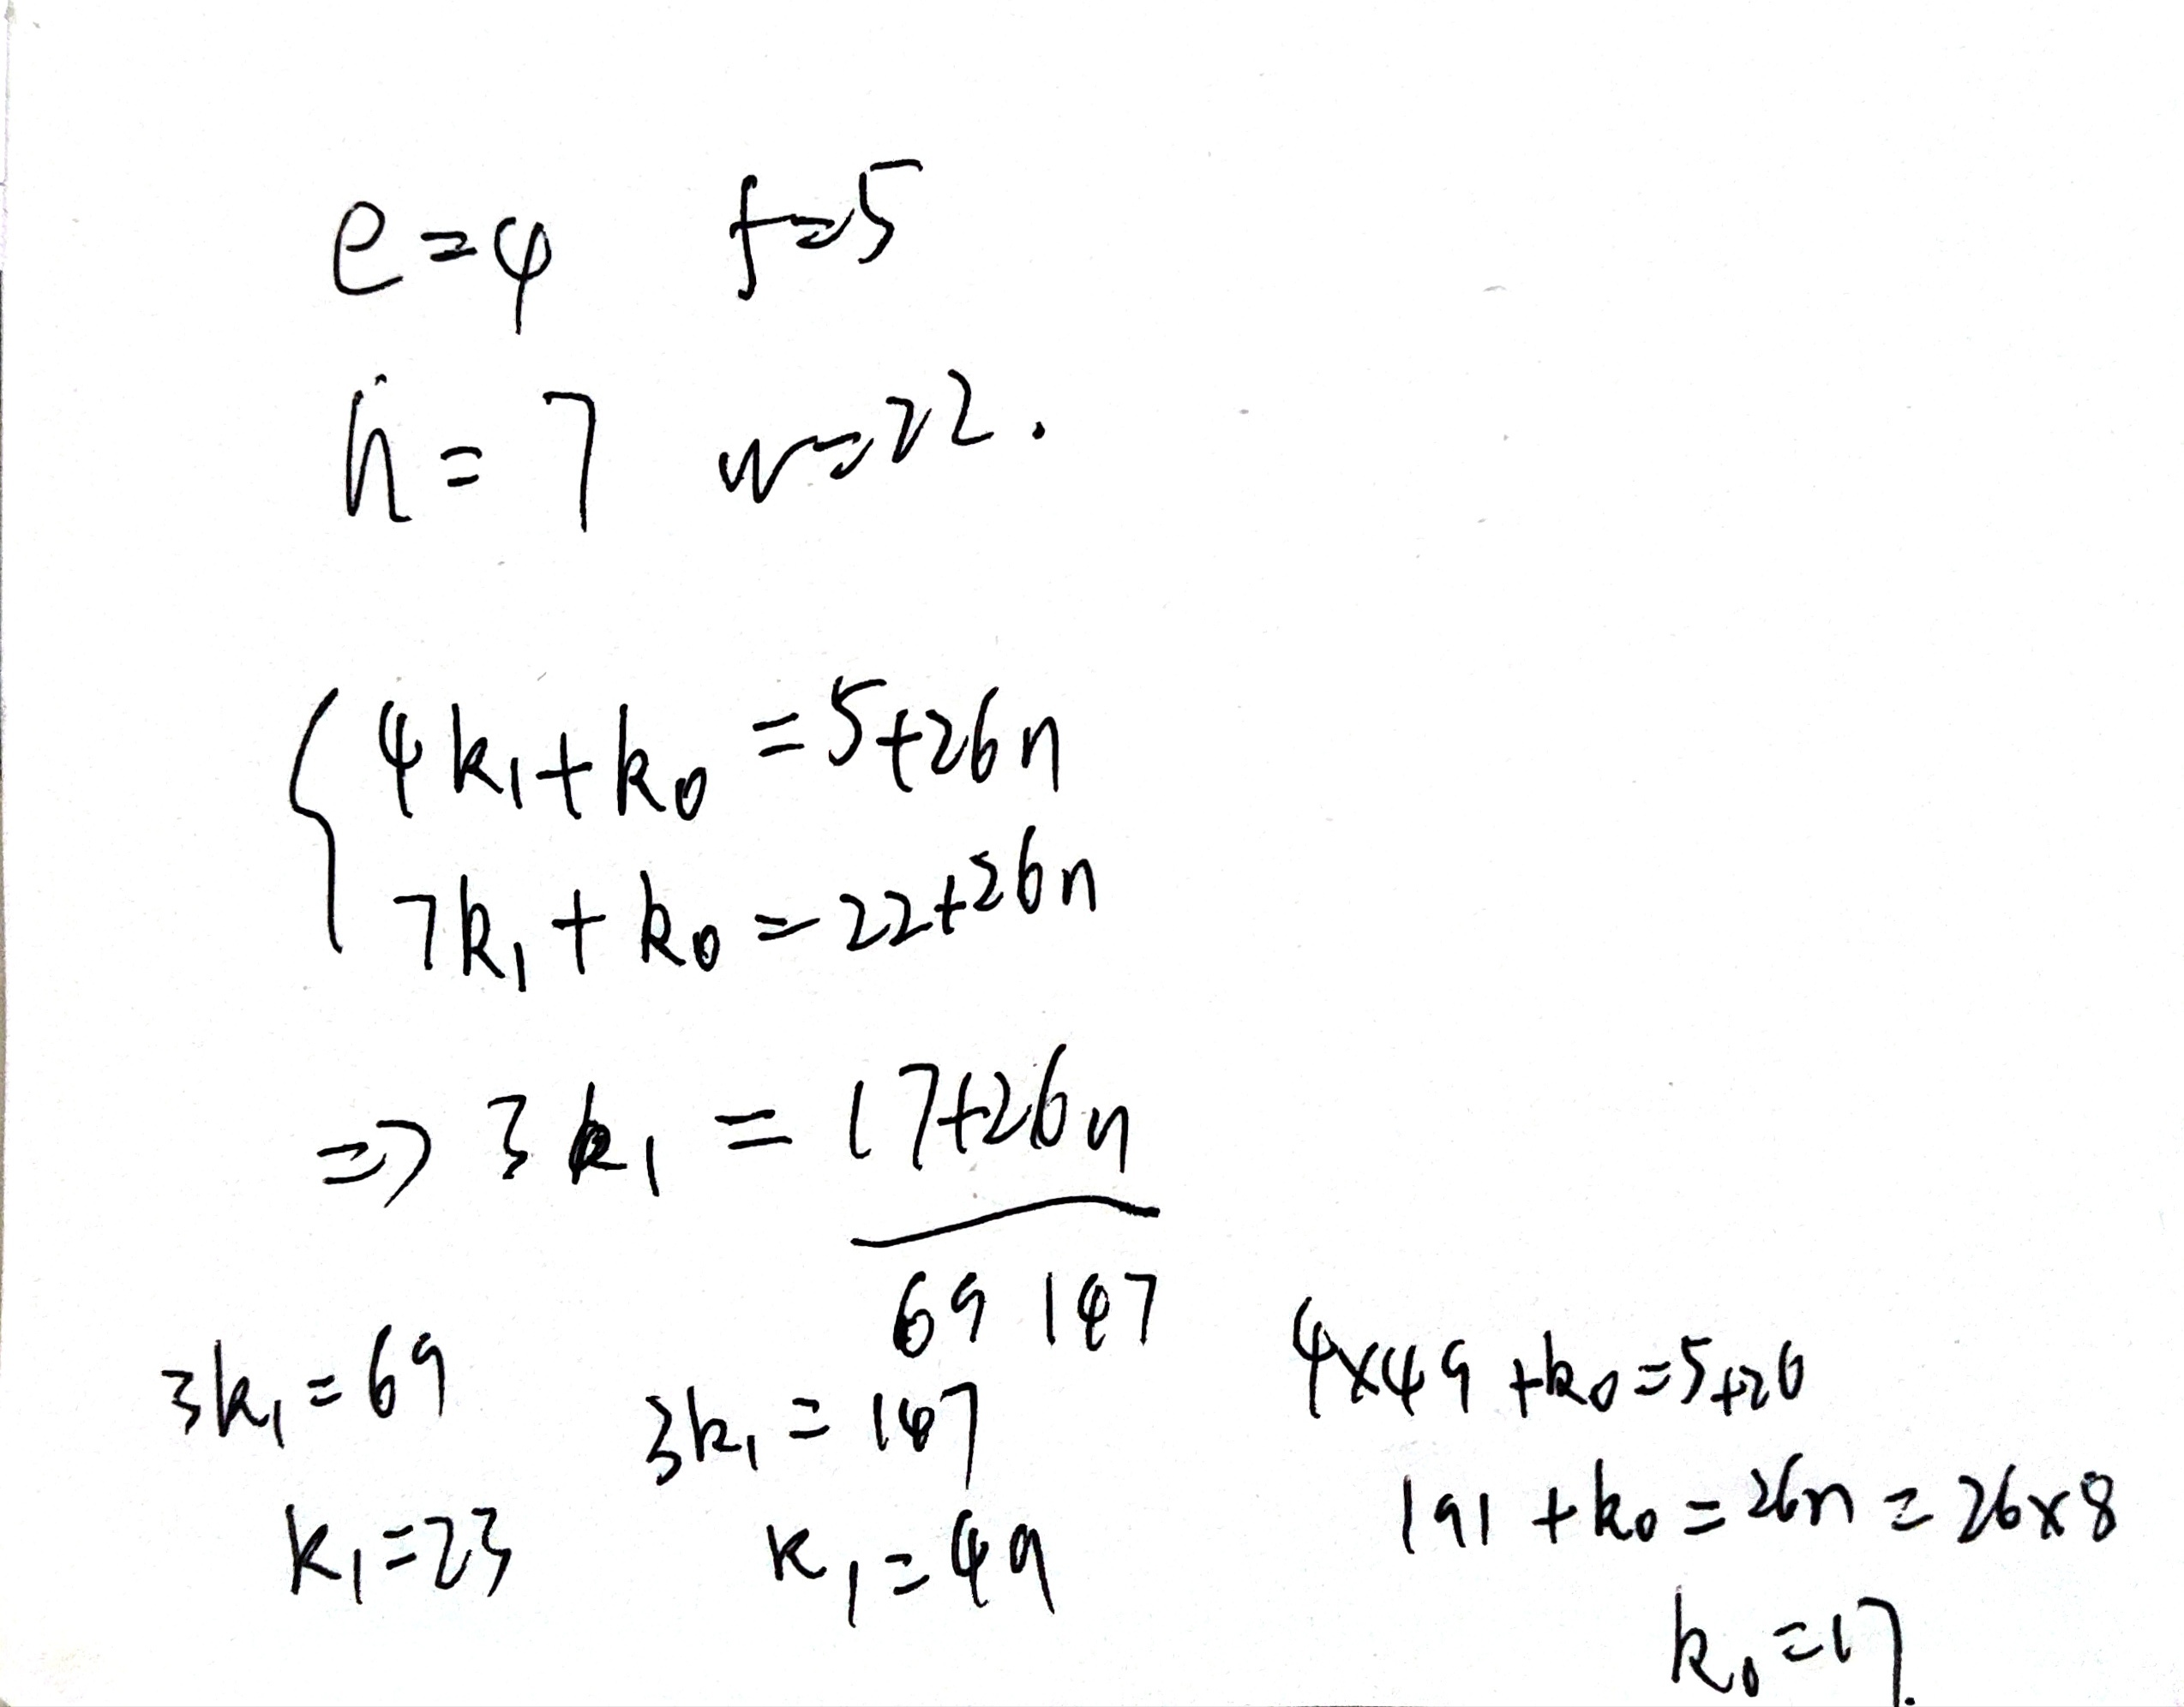 e=4 f=5
h=7 w=22.
4k₁+k₀=5+26n
7k₁+k₀=22+26n
⇒3k₁=17+26n
69 147
3k₁=69
k₁=23
3k₁=147
k₁=49
4×49+k₀=5+26
191+k₀=26n=26×8
k₀=17.